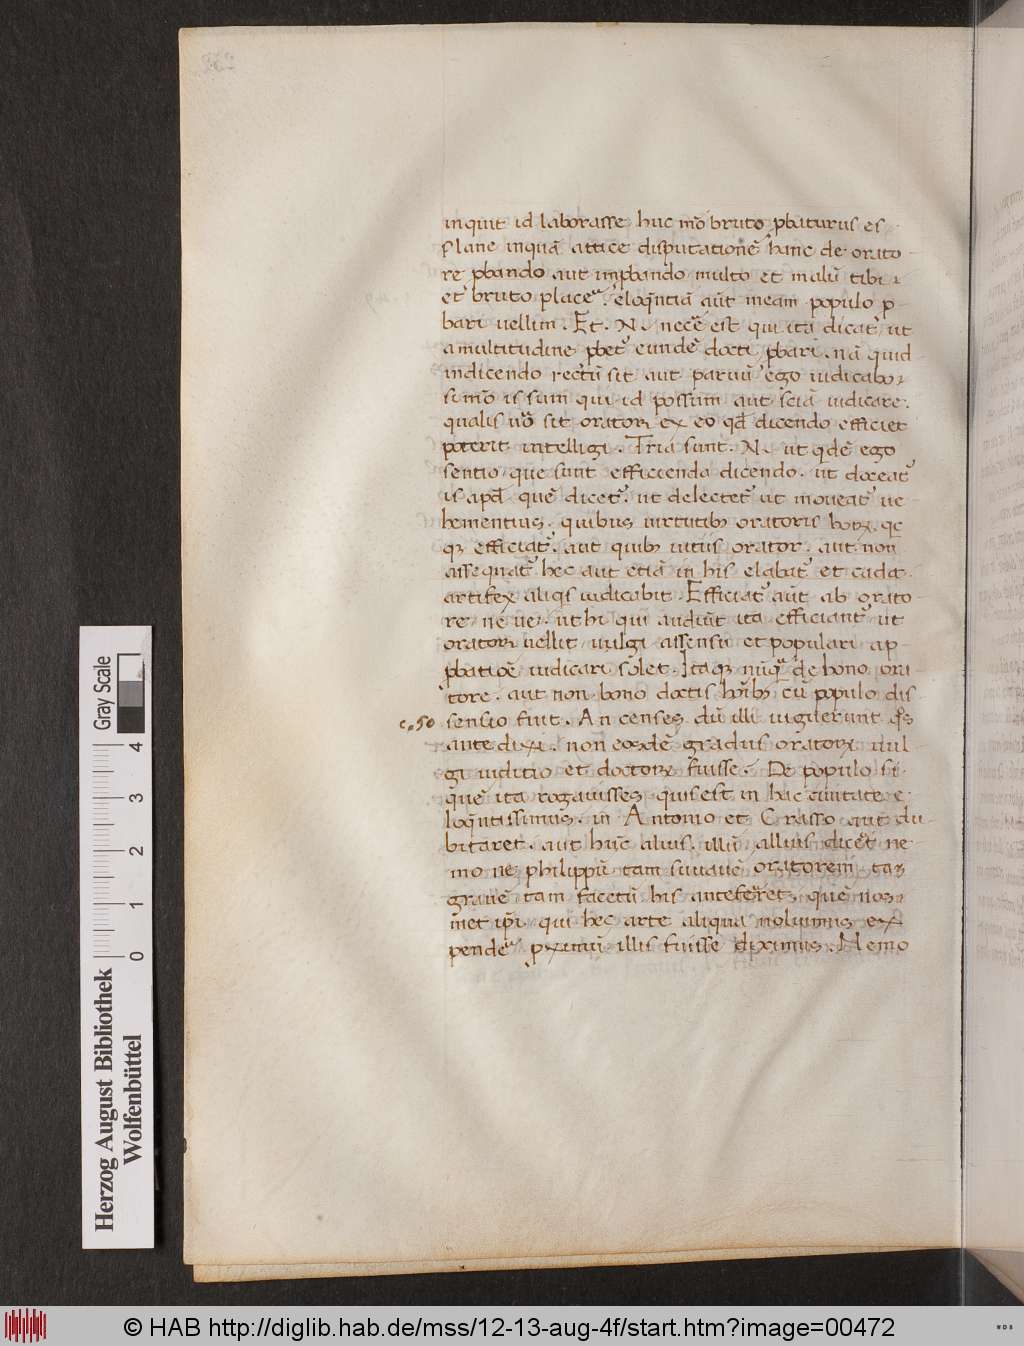 inquit id laborasse huc mō bruto ꝓbaturus es
Plane inquā attice disputationē hanc de orato
re ꝓbando aut imꝓbando multo et malū tibi
et bruto placeᷣ. eloqntiā aūt meam populo ꝓ
bari uellim. Et. N. necē est qui ita dicat ut
a multitudine ꝓbet eundē docti ꝓbari. nā quid
indicendo rectū sit aut paruū ego iudicabo
si mō is sum qui id possum aut sciā iudicare.
qualis uō sit orator ex eo qd dicendo efficiet
poterit intelligi. Tria sunt. N. ut qdē ego
sentio que sunt efficienda dicendo. ut doceat
is apd quē dicet. ut delectet ut moueat ue
hementius. quibus uirtutibꝫ oratoris hoꝝ. qc
qꝫ efficiat. aut quibꝫ uitiis orator. aut non
assequat hec aut etiā in his elabat et cadat
artifex aliqs iudicabit. Efficiat aūt ab orato
re ne ue. ut hi qui audiūt ita efficiant ut
orator uellit uulgi assensu et populari ap
ꝓbatiōe iudicari solet. Itaqꝫ nūq de bono ora
tore. aut non bono doctis hoībꝫ cū populo dis
c. 50 sensio fuit. An censes dū illi uiguerunt qs
ante dixi. non eosdē gradus oratoꝝ uul
gi iuditio et doctoꝝ fuisse. De populo si
quē ita rogauisses quis est in hac ciuitate e
loqntissimus. in Antonio et Crasso aut du
bitaret. aut hūc alius. illū alius dicēt ne
mo ne philippū tam suauē oratorem tam
grauē tam facetū his anteferret quē nos
met ipi qui hec arte aliqua uolumus ex
pendē ꝓximū illis fuisse diximus. Nemo
Gray Scale
4
3
2
1
0
Herzog August Bibliothek
Wolfenbüttel
© HAB http://diglib.hab.de/mss/12-13-aug-4f/start.htm?image=00472